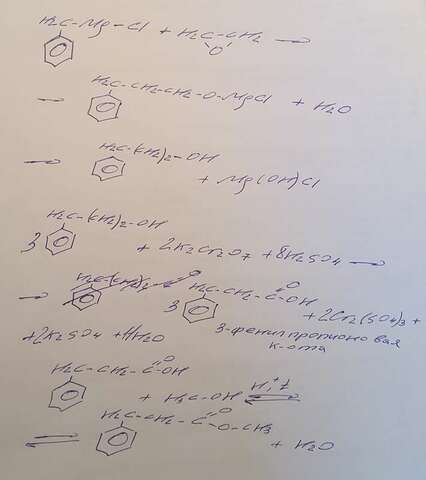 H₂C-Mg-Cl + H₂C-CH₂ →
O
→ H₂C-CH₂-CH₂-O-MgCl + H₂O
→ H₂C-(CH₂)₂-OH
+ Mg(OH)Cl
H₂C-(CH₂)₂-OH
3 + 2K₂Cr₂O₇ + 8H₂SO₄ →
→ 3 H₂C-CH₂-C=O OH + 2Cr₂(SO₄)₃ +
3-фенилпропионовая
+2K₂SO₄ + 11H₂O к-ота
H₂C-CH₂-C=O OH
+ H₃C-OH H⁺, t ⇌
⇌ H₂C-CH₂-C=O O-CH₃
+ H₂O